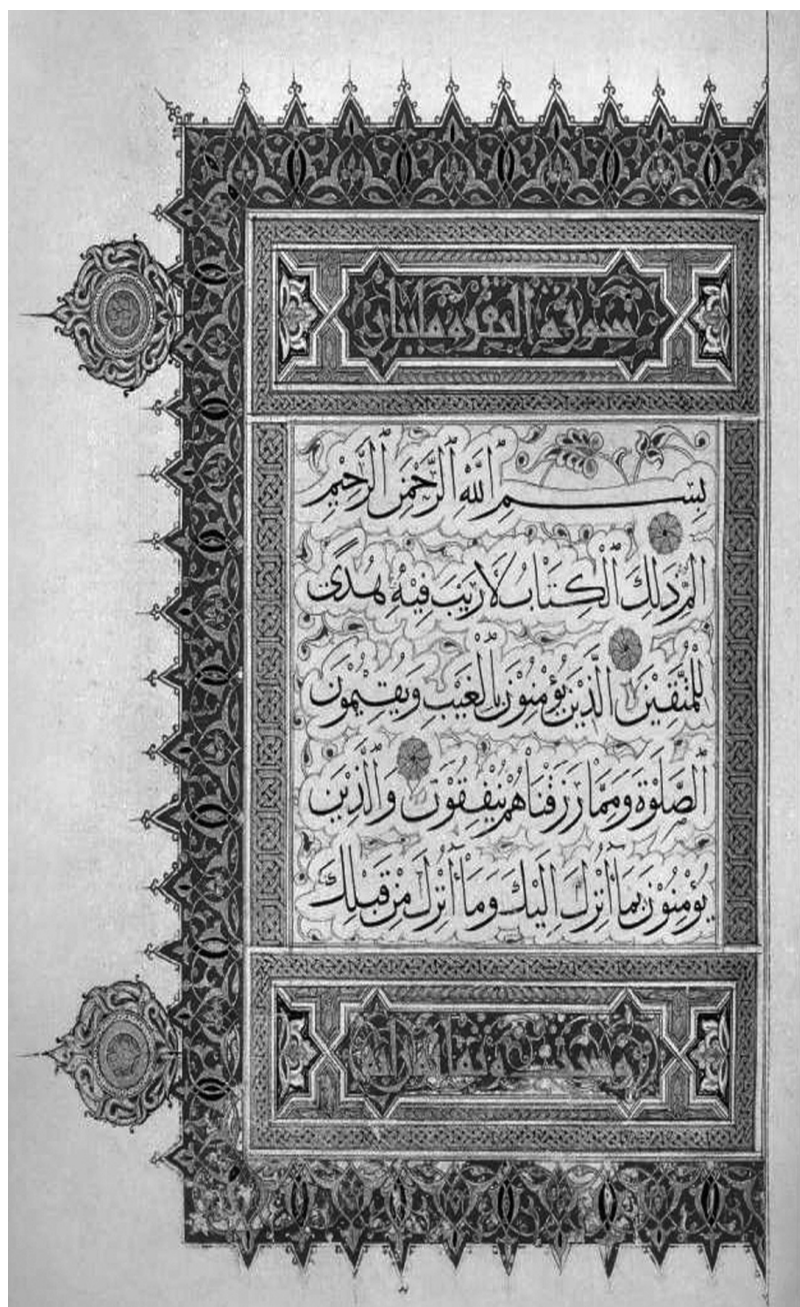 سورة البقرة مايتان
بِسْمِ اللَّهِ الرَّحْمَنِ الرَّحِيْمِ
الم ذَلِكَ الْكِتَابُ لَا رَيْبَ فِيْهِ هُدًى
لِلْمُتَّقِيْنَ الَّذِيْنَ يُؤْمِنُوْنَ بِالْغَيْبِ وَيُقِيْمُوْنَ
الصَّلَوٰةَ وَمِمَّا رَزَقْنَاهُمْ يُنْفِقُوْنَ وَالَّذِيْنَ
يُؤْمِنُوْنَ بِمَا أُنْزِلَ اِلَيْكَ وَمَا أُنْزِلَ مِنْ قَبْلِكَ